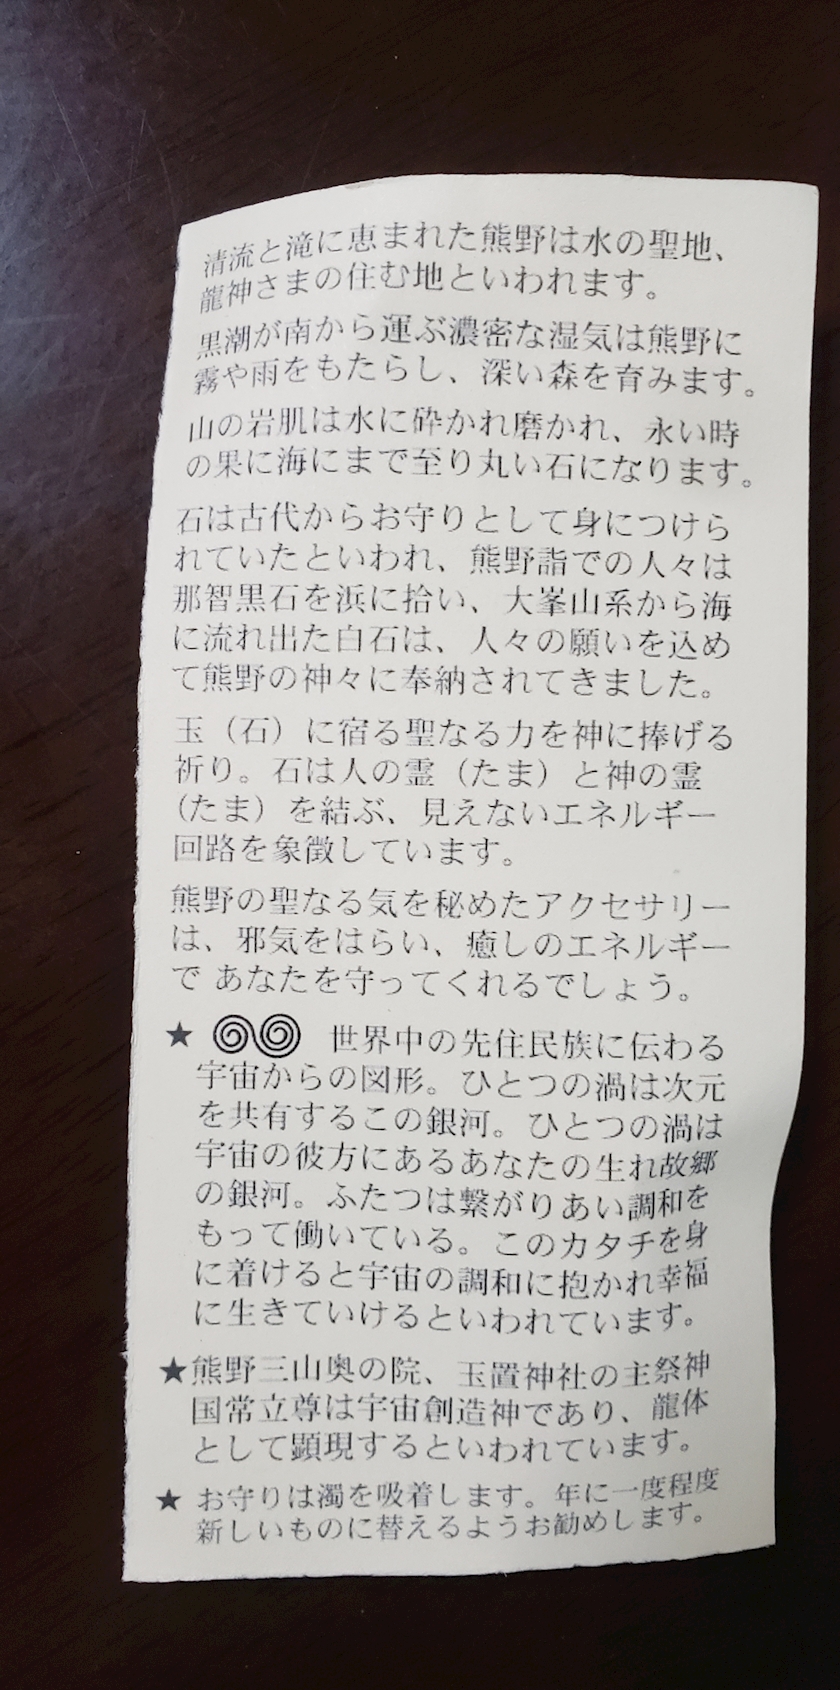 清流と滝に恵まれた熊野は水の聖地、
龍神さまの住む地といわれます。
黒潮が南から運ぶ濃密な湿気は熊野に
霧や雨をもたらし、深い森を育みます。
山の岩肌は水に砕かれ磨かれ、永い時
の果に海にまで至り丸い石になります。
石は古代からお守りとして身につけら
れていたといわれ、熊野詣での人々は
那智黒石を浜に拾い、大峯山系から海
に流れ出た白石は、人々の願いを込め
て熊野の神々に奉納されてきました。
玉（石）に宿る聖なる力を神に捧げる
祈り。石は人の霊（たま）と神の霊
（たま）を結ぶ、見えないエネルギー
回路を象徴しています。
熊野の聖なる気を秘めたアクセサリー
は、邪気をはらい、癒しのエネルギー
で あなたを守ってくれるでしょう。
★ 世界中の先住民族に伝わる
宇宙からの図形。ひとつの渦は次元
を共有するこの銀河。ひとつの渦は
宇宙の彼方にあるあなたの生れ故郷
の銀河。ふたつは繋がりあい調和を
もって働いている。このカタチを身
に着けると宇宙の調和に抱かれ幸福
に生きていけるといわれています。
★熊野三山奥の院、玉置神社の主祭神
国常立尊は宇宙創造神であり、龍体
として顕現するといわれています。
★ お守りは濁を吸着します。年に一度程度
新しいものに替えるようお勧めします。